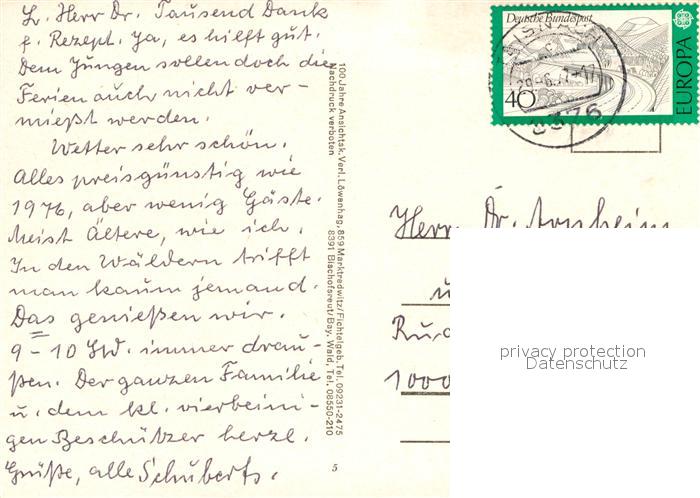 L. Herr Dr. Tausend Dank
f. Rezept. Ja, es hilft gut.
Dem Jungen sollen doch die
Ferien auch nicht ver-
mießt werden.
Wetter sehr schön.
Alles preisgünstig wie
1976, aber wenig Gäste.
Meist Ältere, wie ich.
In den Wäldern trifft
man kaum jemand.
Das genießen wir.
9-10 Std. immer drau-
ßen. Der ganzen Familie
u. dem kl. vierbeini-
gen Beschützer herzl.
Grüße, alle Schuberts.
100 Jahre Ansichtsk. Verl. Löwenhag, 859 Marktredwitz/Fichtelgeb. Tel. 09231-2475
Nachdruck verboten
8391 Bischofsreut/Bay. Wald, Tel. 08550-210
5
Deutsche Bundespost
40
EUROPA
CEPT
8376
Herr Dr. Arnheim
u
Rud
1000
privacy protection
Datenschutz